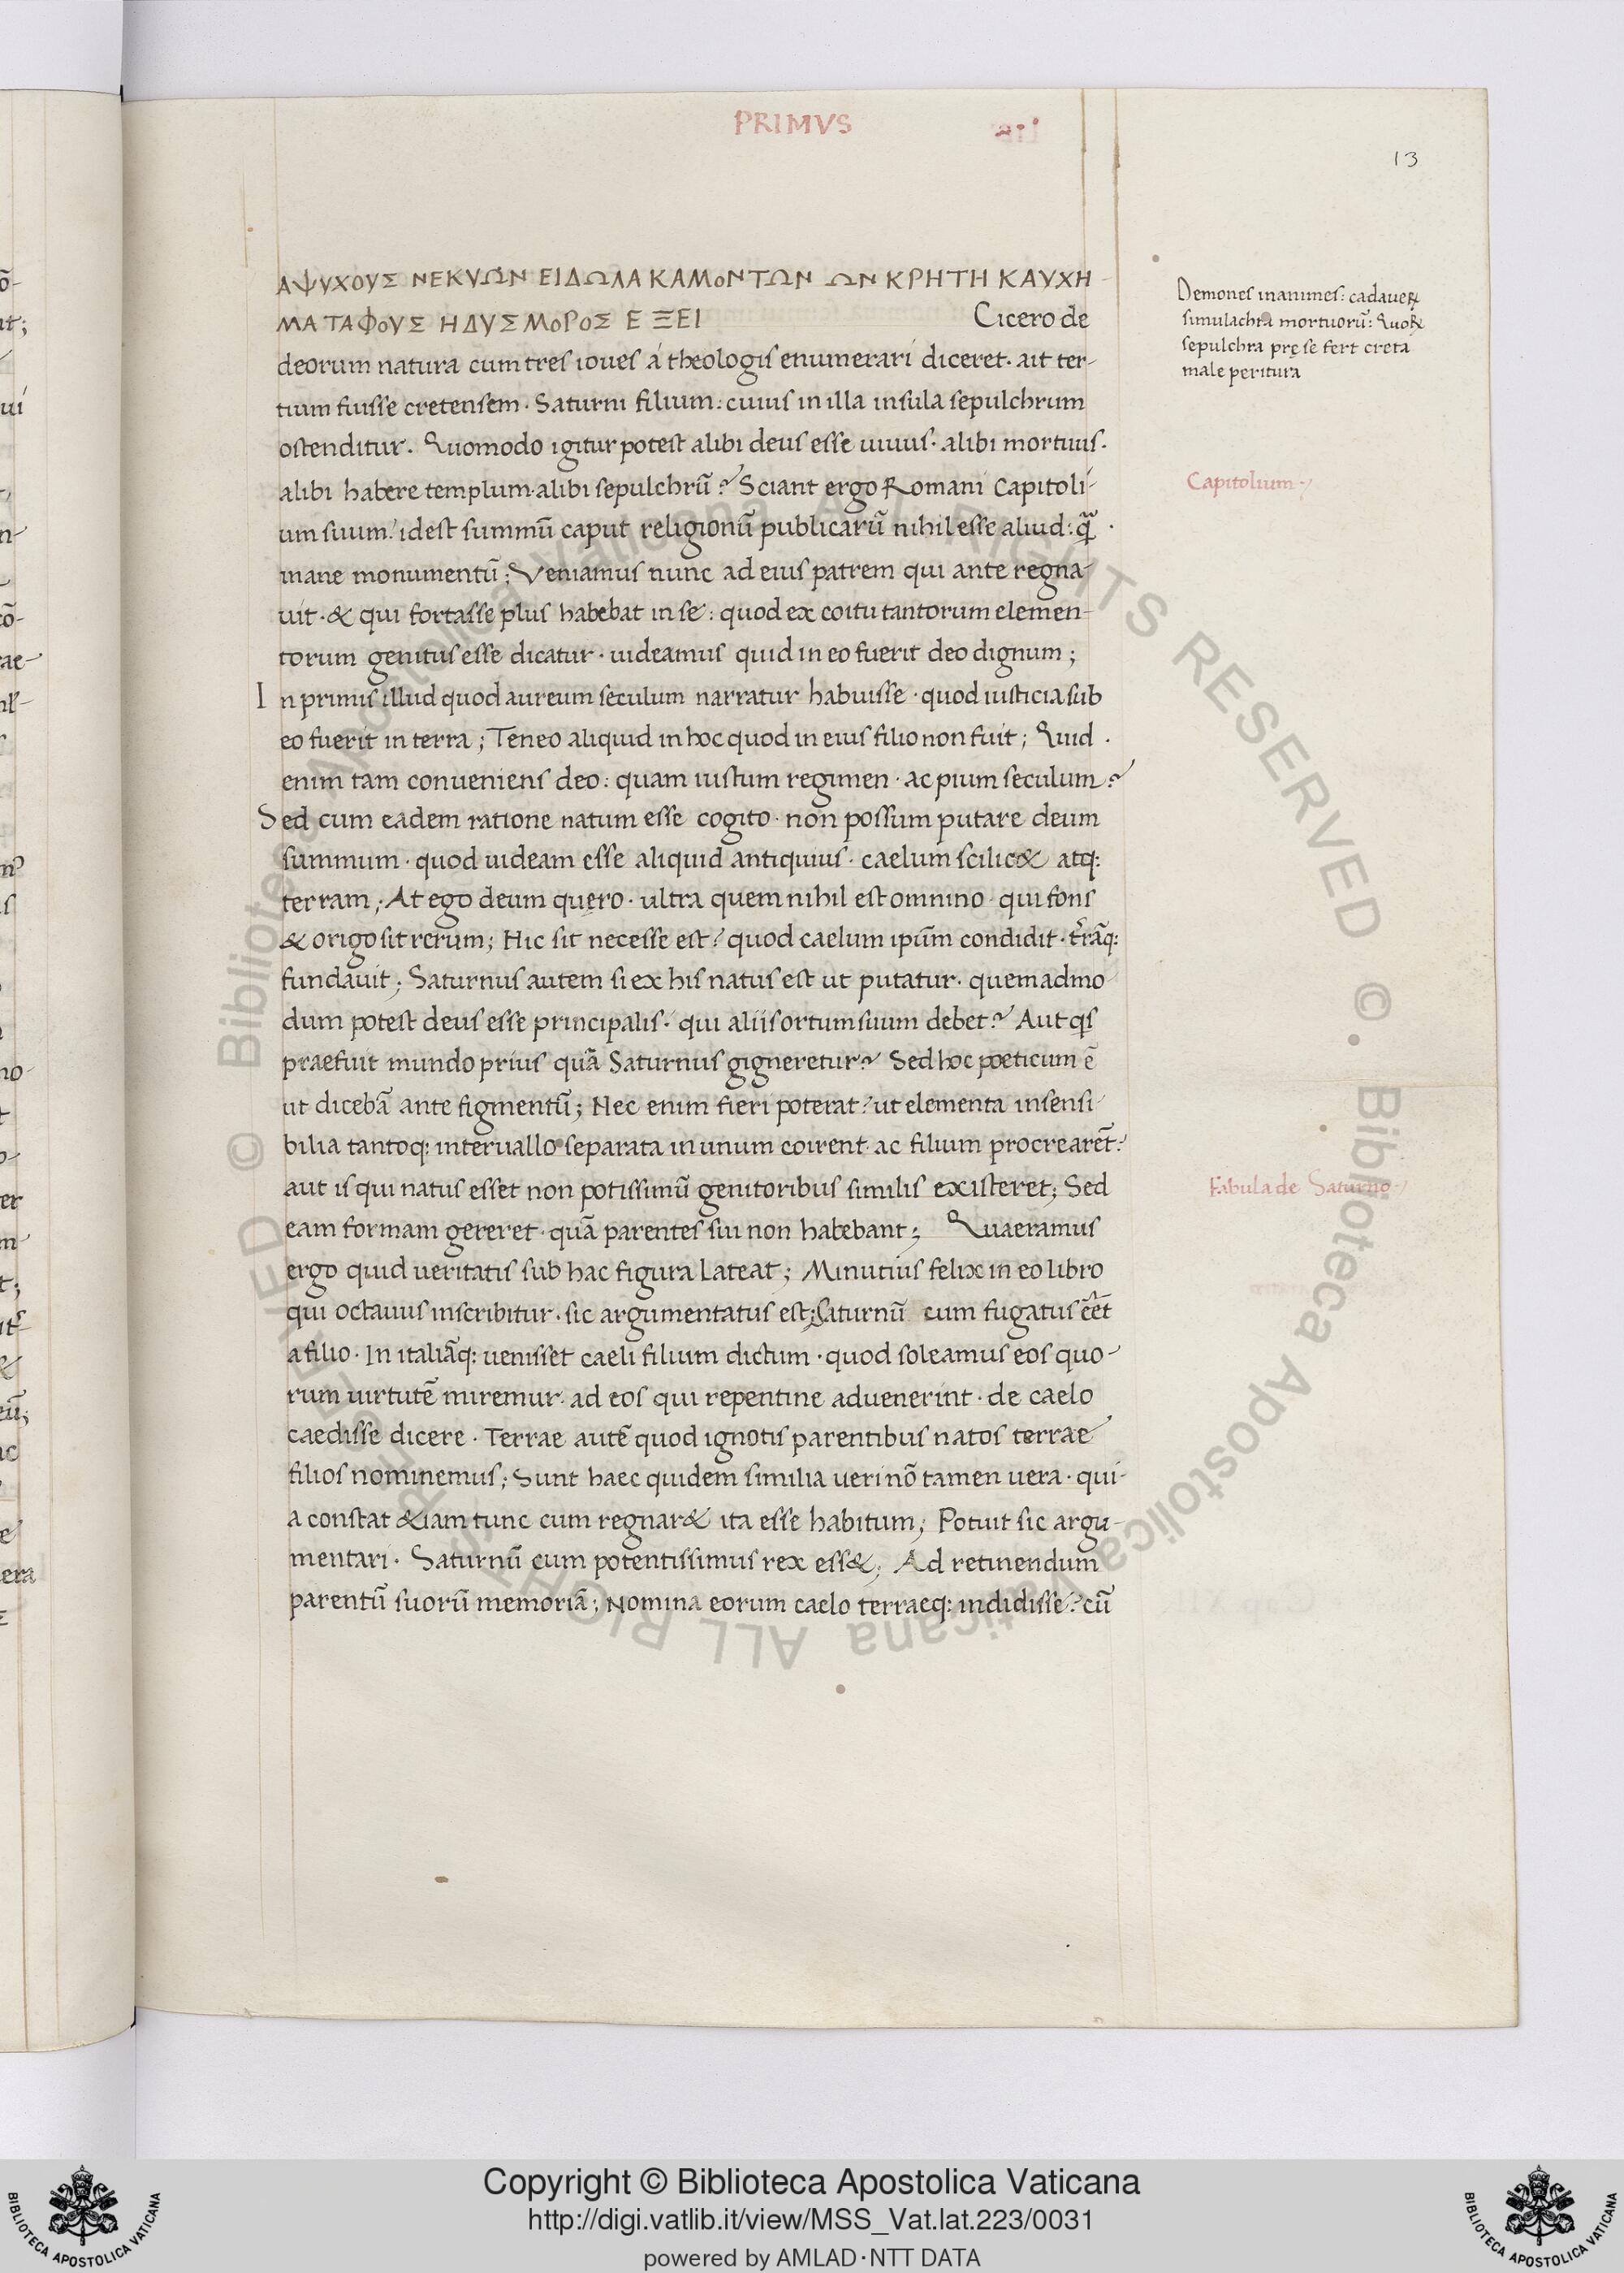 PRIMVS
13
ΑΨΥΧΟΥΣ ΝΕΚΥΩΝ ΕΙΔΩΛΑ ΚΑΜΟΝΤΩΝ ΩΝ ΚΡΗΤΗ ΚΑΥΧΗ
ΜΑ ΤΑΦΟΥΣ ΗΔΥΣΜΟΡΟΣ ΕΞΕΙ Cicero de
deorum natura cum tres ioues á theologis enumerari diceret· ait ter-
tium fuisse cretensem· Saturni filium: cuius in illa insula sepulchrum
ostenditur. Quomodo igitur potest alibi deus esse uiuus· alibi mortuus·
alibi habere templum· alibi sepulchrū? Sciant ergo Romani Capitoli-
um suum: idest summū caput religionū publicarū nihil esse aliud: q̄
inane monumentū; Veniamus nunc ad eius patrem qui ante regna
uit· & qui fortasse plus habebat in se: quod ex coitu tantorum elemen-
torum genitus esse dicatur· uideamus quid in eo fuerit deo dignum;
In primis illud quod aureum seculum narratur habuisse· quod iusticia sub
eo fuerit in terra; Teneo aliquid in hoc quod in eius filio non fuit; Quid
enim tam conueniens deo: quam iustum regimen· ac pium seculum?
Sed cum eadem ratione natum esse cogito· non possum putare deum
summum· quod uideam esse aliquid antiquius· caelum scilic& atq:
terram; At ego deum quero· ultra quem nihil est omnino· qui fons
& origo sit rerum; Hic sit necesse est? quod caelum ipūm condidit· t̄rāq:
fundauit; Saturnus autem si ex his natus est ut putatur· quemadmo
dum potest deus esse principalis· qui aliis ortum suum debet? Aut qs
praefuit mundo prius quā Saturnus gigneretur? Sed hoc poeticum ē
ut dicebā ante figmentū; Nec enim fieri poterat? ut elementa insensi
bilia tantoq: interuallo separata in unum coirent· ac filium procrearēt:
aut is qui natus esset non potissimū genitoribus similis existeret; Sed
eam formam gereret· quā parentes sui non habebant; Quaeramus
ergo quid ueritatis sub hac figura lateat; Minutius felix in eo libro
qui octauus inscribitur· sic argumentatus est; Saturnū cum fugatus eēt
a filio· In italiāq: uenisset caeli filium dictum· quod soleamus eos quo-
rum uirtutē miremur· ad eos qui repentine aduenerint· de caelo
caedisse dicere· Terrae autē quod ignotis parentibus natos terrae
filios nominemus; Sunt haec quidem similia ueri nō tamen uera· qui-
a constat &iam tunc cum regnar& ita esse habitum; Potuit sic argu-
mentari· Saturnū cum potentissimus rex ess&; Ad retinendum
parentū suorū memoriā; Nomina eorum caelo terraeq: indidisse? cū
Demones inanimes: cadaueꝝ
simulachra mortuorū: Quoꝝ
sepulchra prę se fert creta
male peritura
Capitolium
Fabula de Saturno
Copyright © Biblioteca Apostolica Vaticana
http://digi.vatlib.it/view/MSS_Vat.lat.223/0031
powered by AMLAD·NTT DATA
BIBLIOTECA APOSTOLICA VATICANA
BIBLIOTECA APOSTOLICA VATICANA
© Biblioteca Apostolica Vaticana ALL RIGHTS RESERVED
© Biblioteca Apostolica Vaticana ALL RIGHTS RESERVED